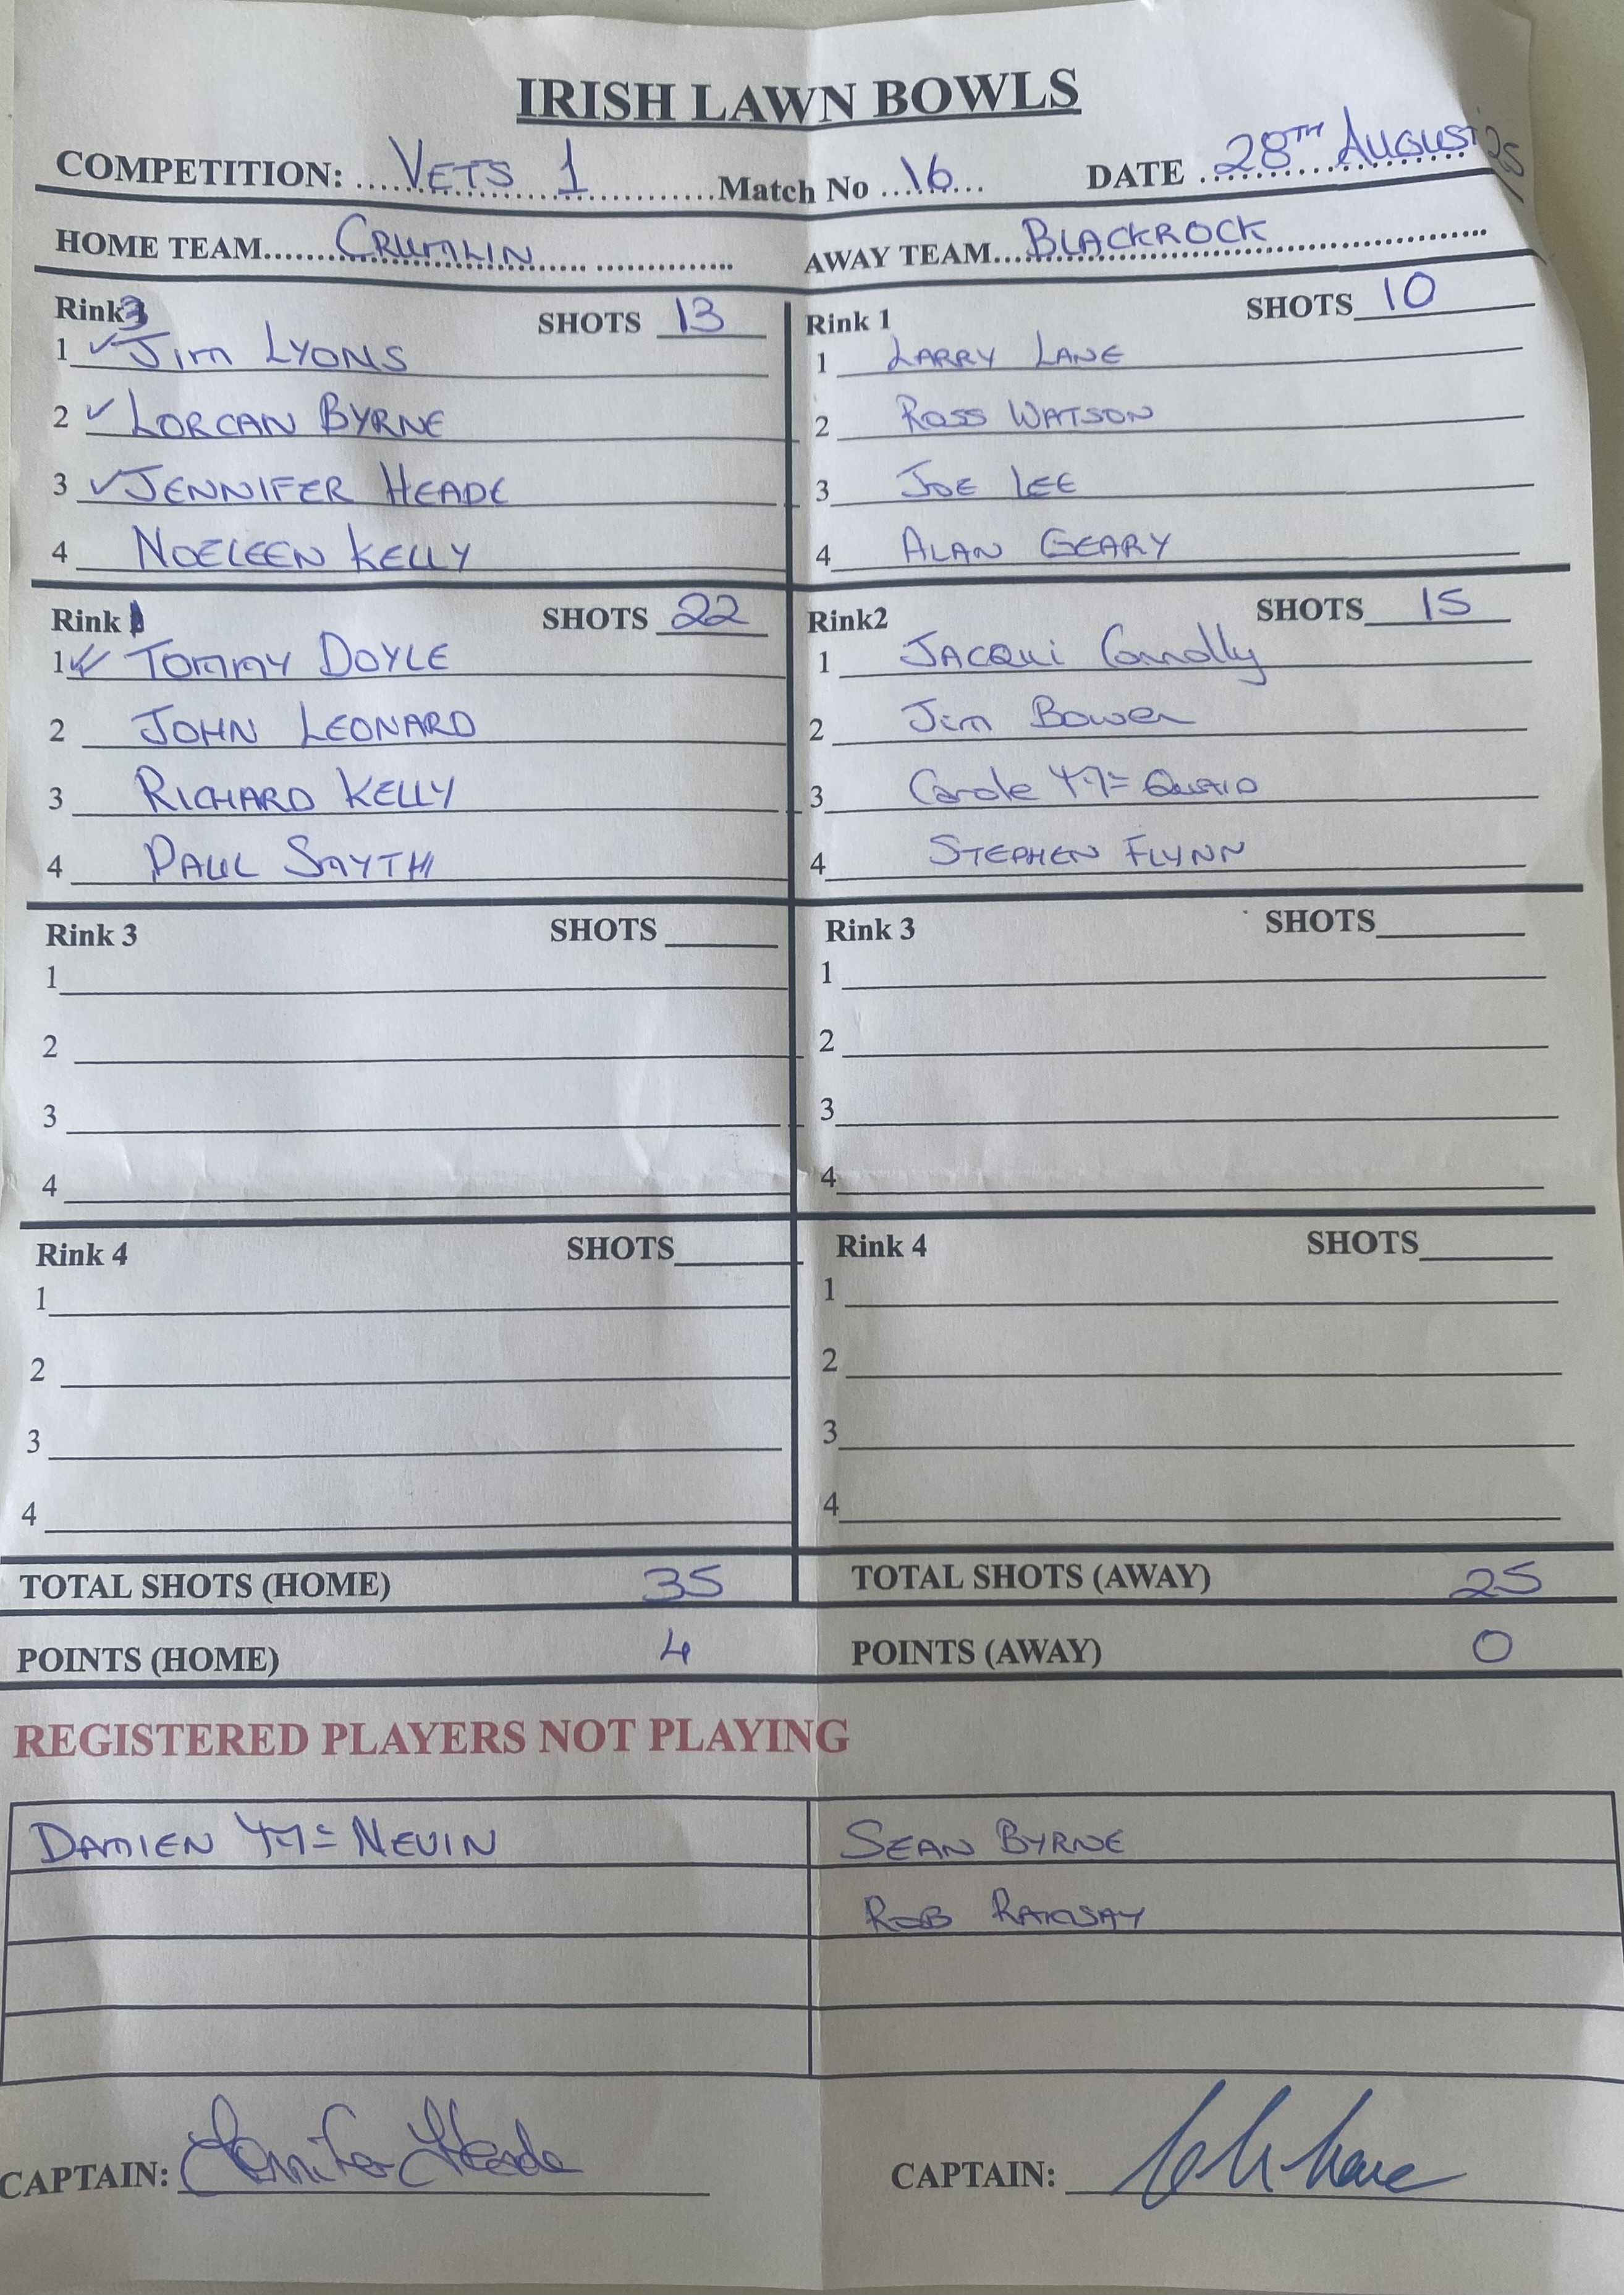 IRISH LAWN BOWLS
COMPETITION: VETS 1 Match No 16 DATE 28TH AUGUST 25
HOME TEAM CRUMLIN AWAY TEAM BLACKROCK
Rink 3 SHOTS 13
1 Jim LYONS
2 LORCAN BYRNE
3 JENNIFER HEADE
4 NOELEEN KELLY
Rink 1 SHOTS 10
1 LARRY LANE
2 ROSS WATSON
3 JOE LEE
4 ALAN GEARY
Rink SHOTS 22
1 TOMMY DOYLE
2 JOHN LEONARD
3 RICHARD KELLY
4 PAUL SMYTH
Rink2 SHOTS 15
1 JACQui Connolly
2 Jim Bowen
3 Carole Mc QUAID
4 STEPHEN FLYNN
Rink 3 SHOTS
1
2
3
4
Rink 3 SHOTS
1
2
3
4
Rink 4 SHOTS
1
2
3
4
Rink 4 SHOTS
1
2
3
4
TOTAL SHOTS (HOME) 35 TOTAL SHOTS (AWAY) 25
POINTS (HOME) 4 POINTS (AWAY) 0
REGISTERED PLAYERS NOT PLAYING
DAMIEN Mc NEVIN SEAN BYRNE
ROB RAMSAY
CAPTAIN: Jennifer Heade CAPTAIN: